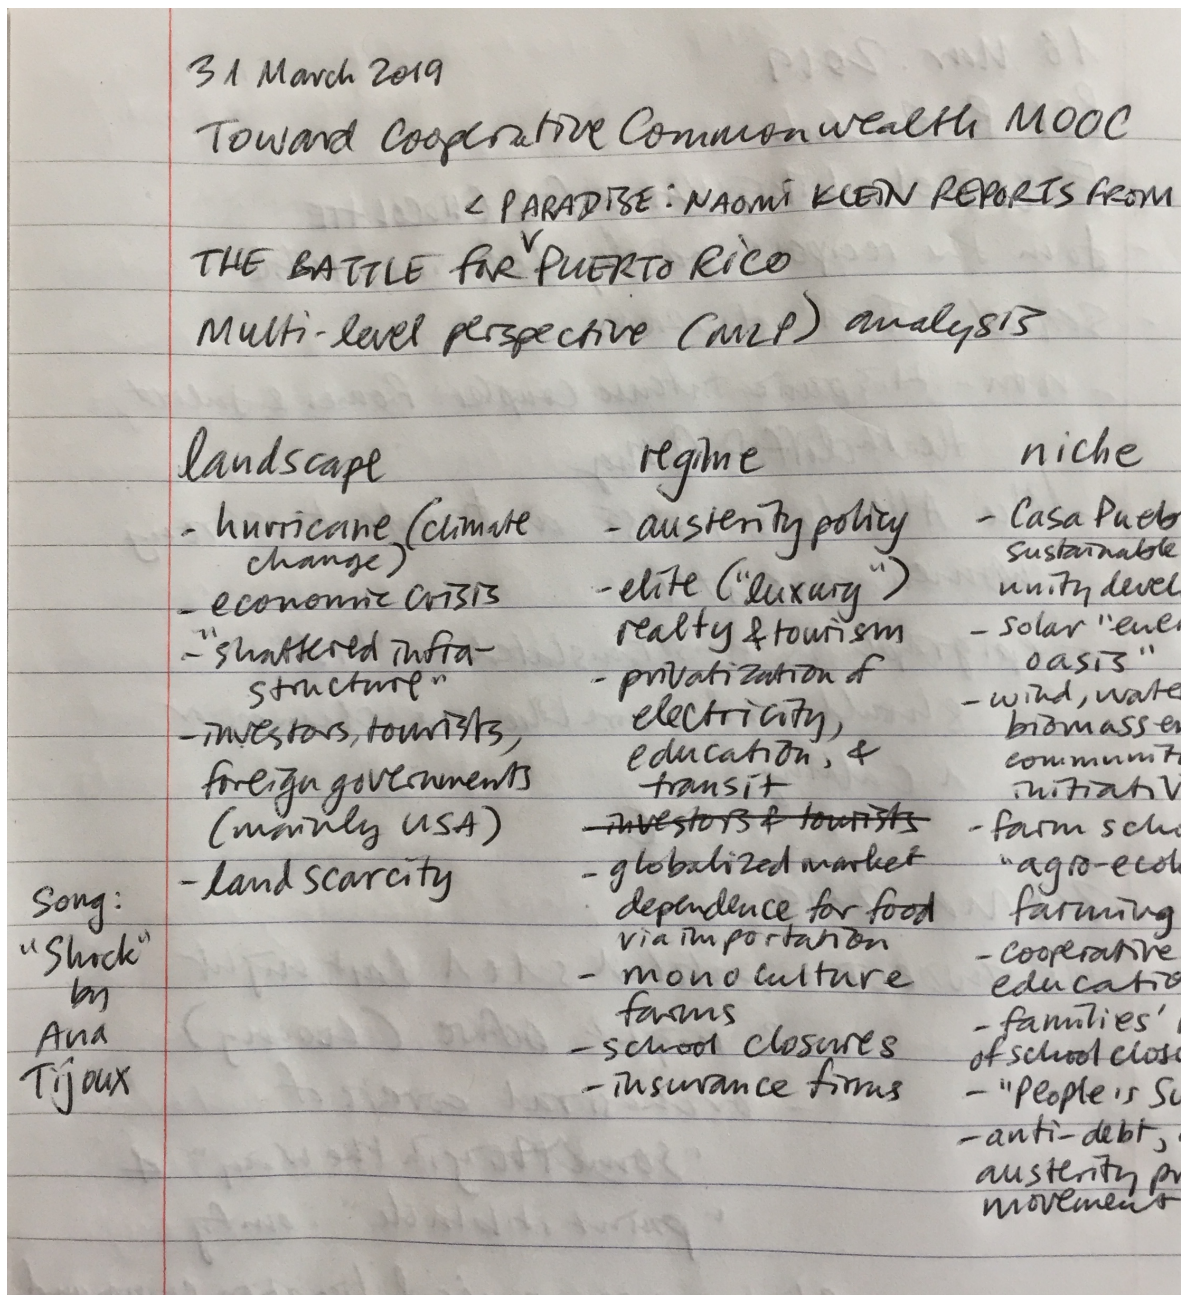 31 March 2019
Toward Cooperative Commonwealth MOOC
< PARADISE: NAOMI KLEIN REPORTS FROM
THE BATTLE FOR PUERTO RICO
Multi-level perspective (MLP) analysis
landscape
- hurricane (climate
change)
- economic crisis
- "shattered infra-
structure"
- investors, tourists,
foreign governments
(mainly USA)
- land scarcity
regime
- austerity policy
- elite ("luxury")
realty & tourism
- privatization of
electricity,
education, &
transit
- investors & tourists
- globalized market
dependence for food
via importation
- monoculture
farms
- school closures
- insurance firms
niche
- Casa Pueb
sustainable
unity devel
- solar "ener
oasis"
- wind, wate
biomass en
communit
initiativ
- farm scho
"agro-ecol
farming
- cooperative
educatio
- families'
of school clos
- "People's Su
- anti-debt,
austerity pr
movement
Song:
"Shock"
by
Ana
Tijoux